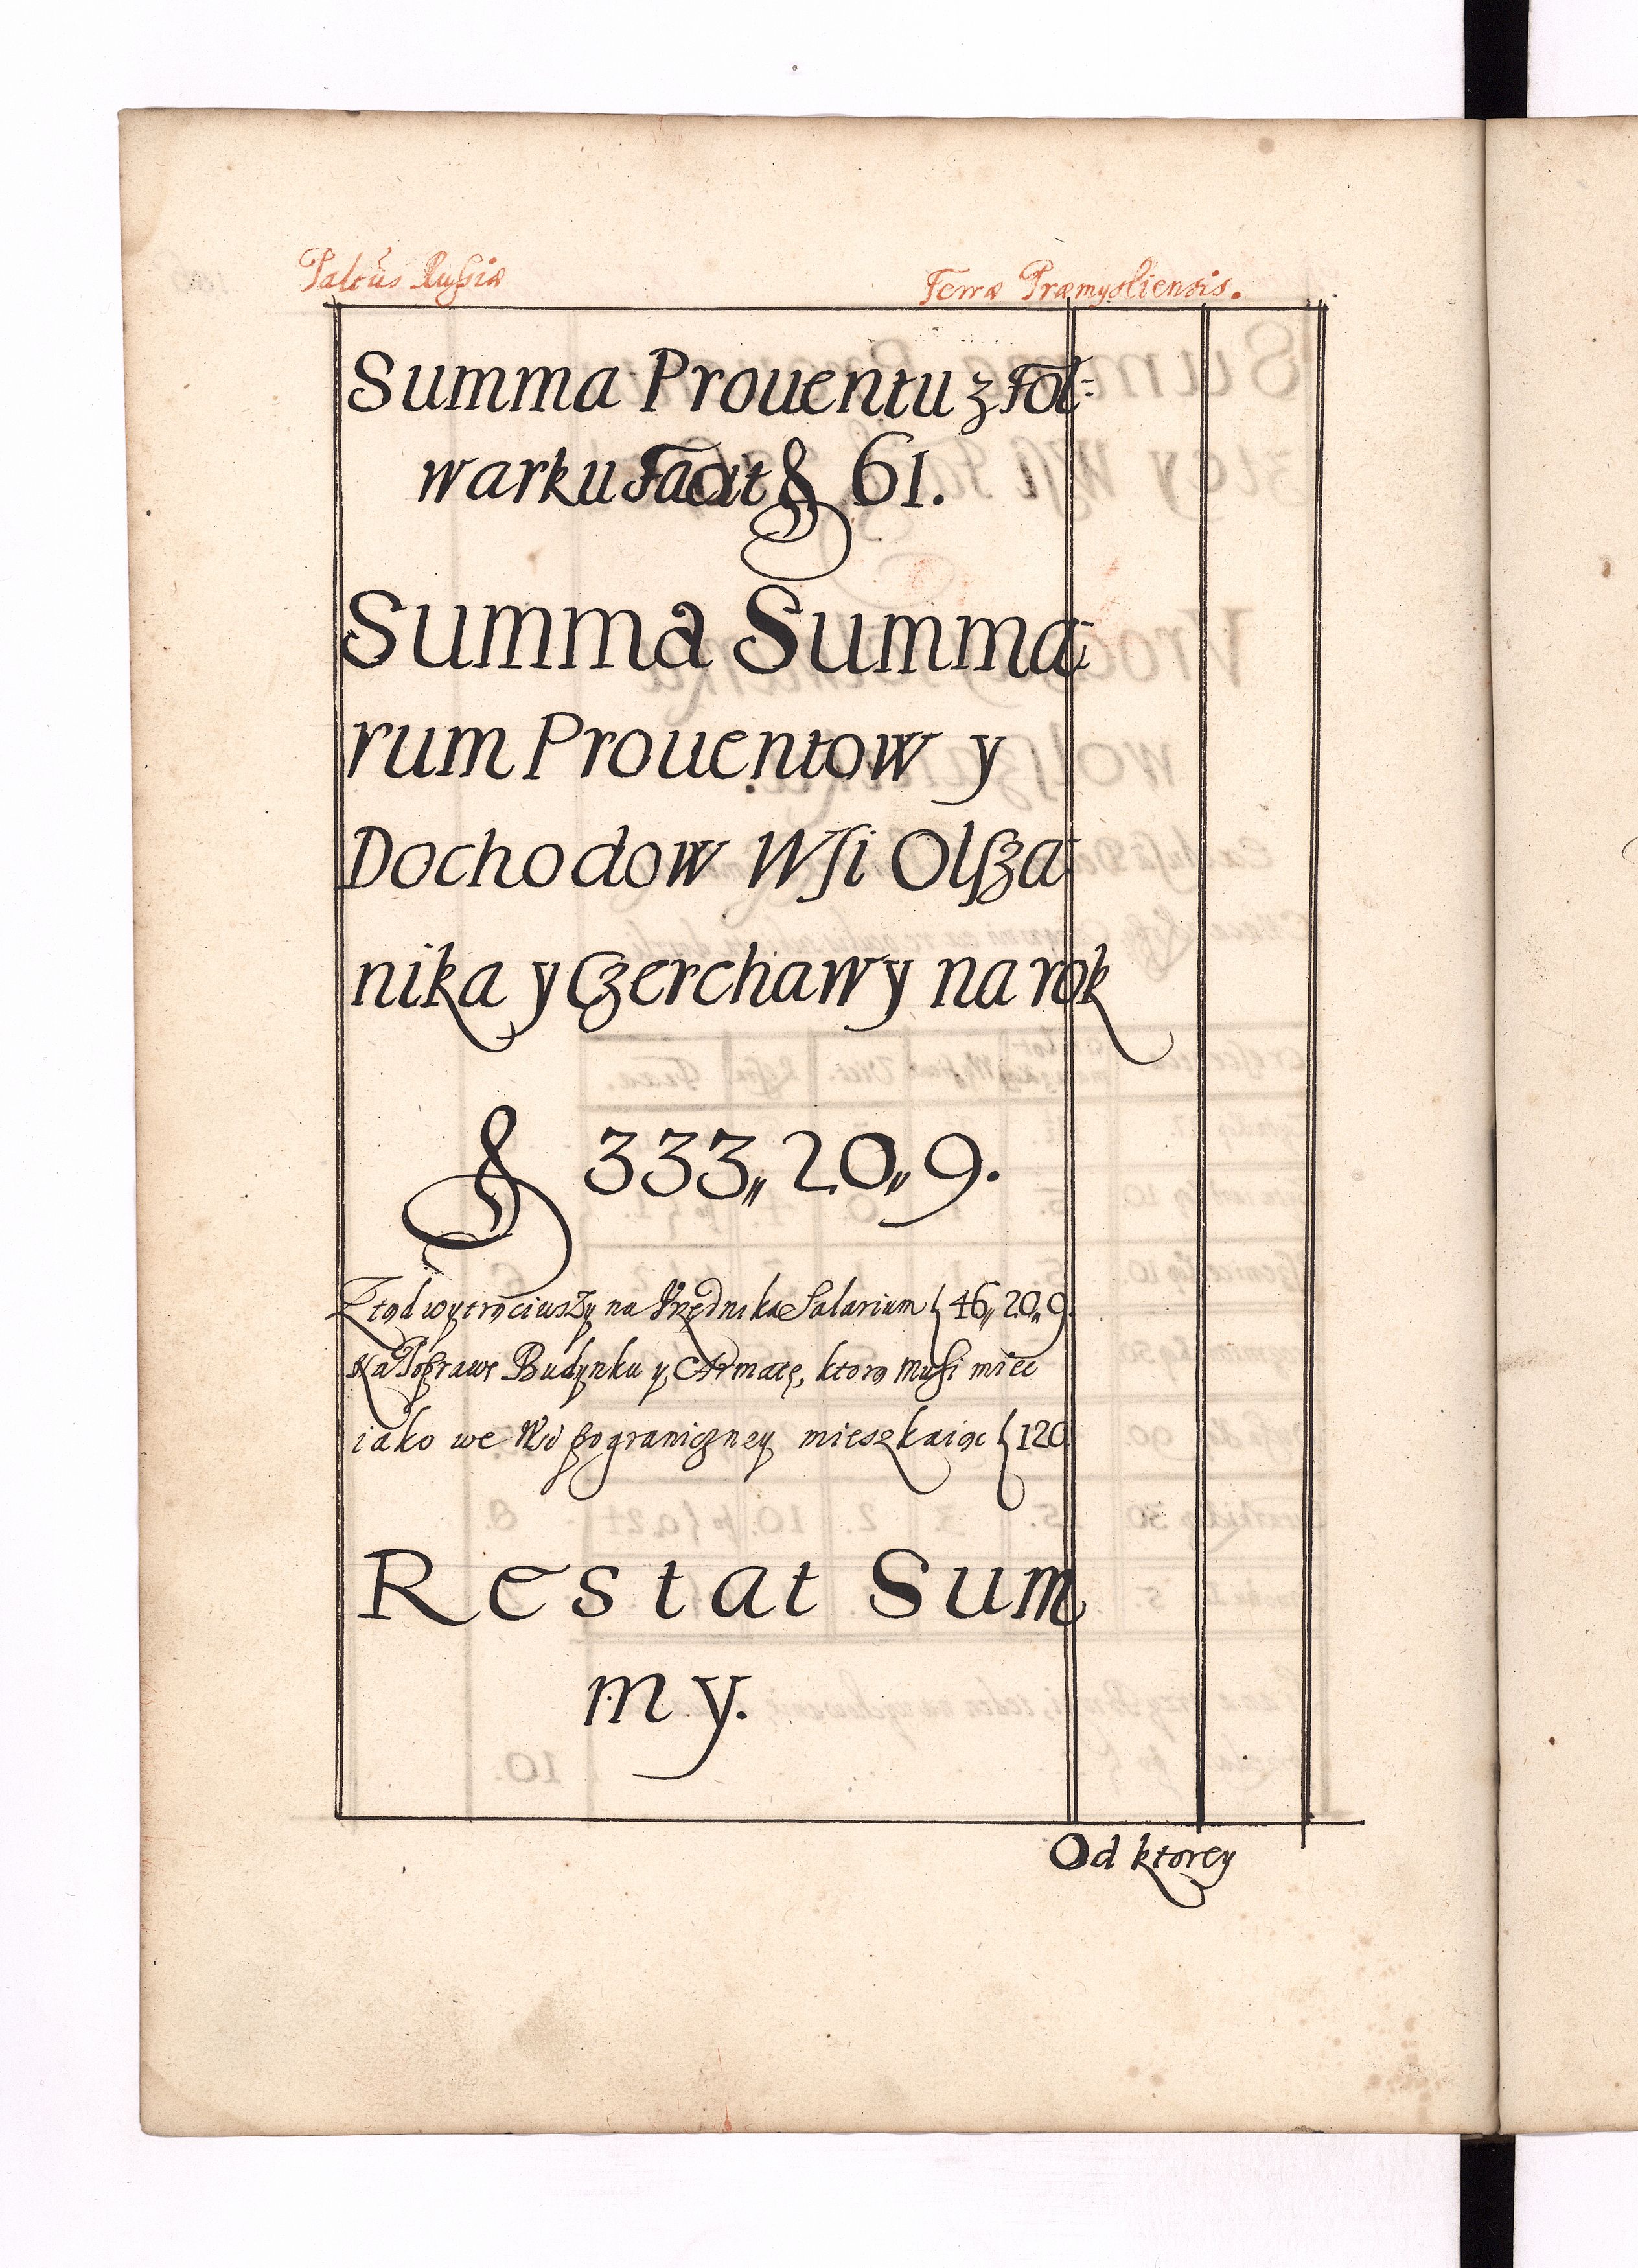 Paltus Russiæ
Terræ Præmysliensis.
Summa Prouentu z Fol=
warku Facit 61.
Summa Summa
rum Prouentow y
Dochodow Wsi Olsza
nika y Czerchawy na rok
333,, 20,, 9.
Ztąd wytrąciwszy na Vrzędnika Salarium 46,, 20,, 9.
Na Poprawe Budynku y Armatę, ktorą musi miec
iako we Wsi pograniczney mieszkaiąc 120.
Restat Sum
my.
Od ktorey